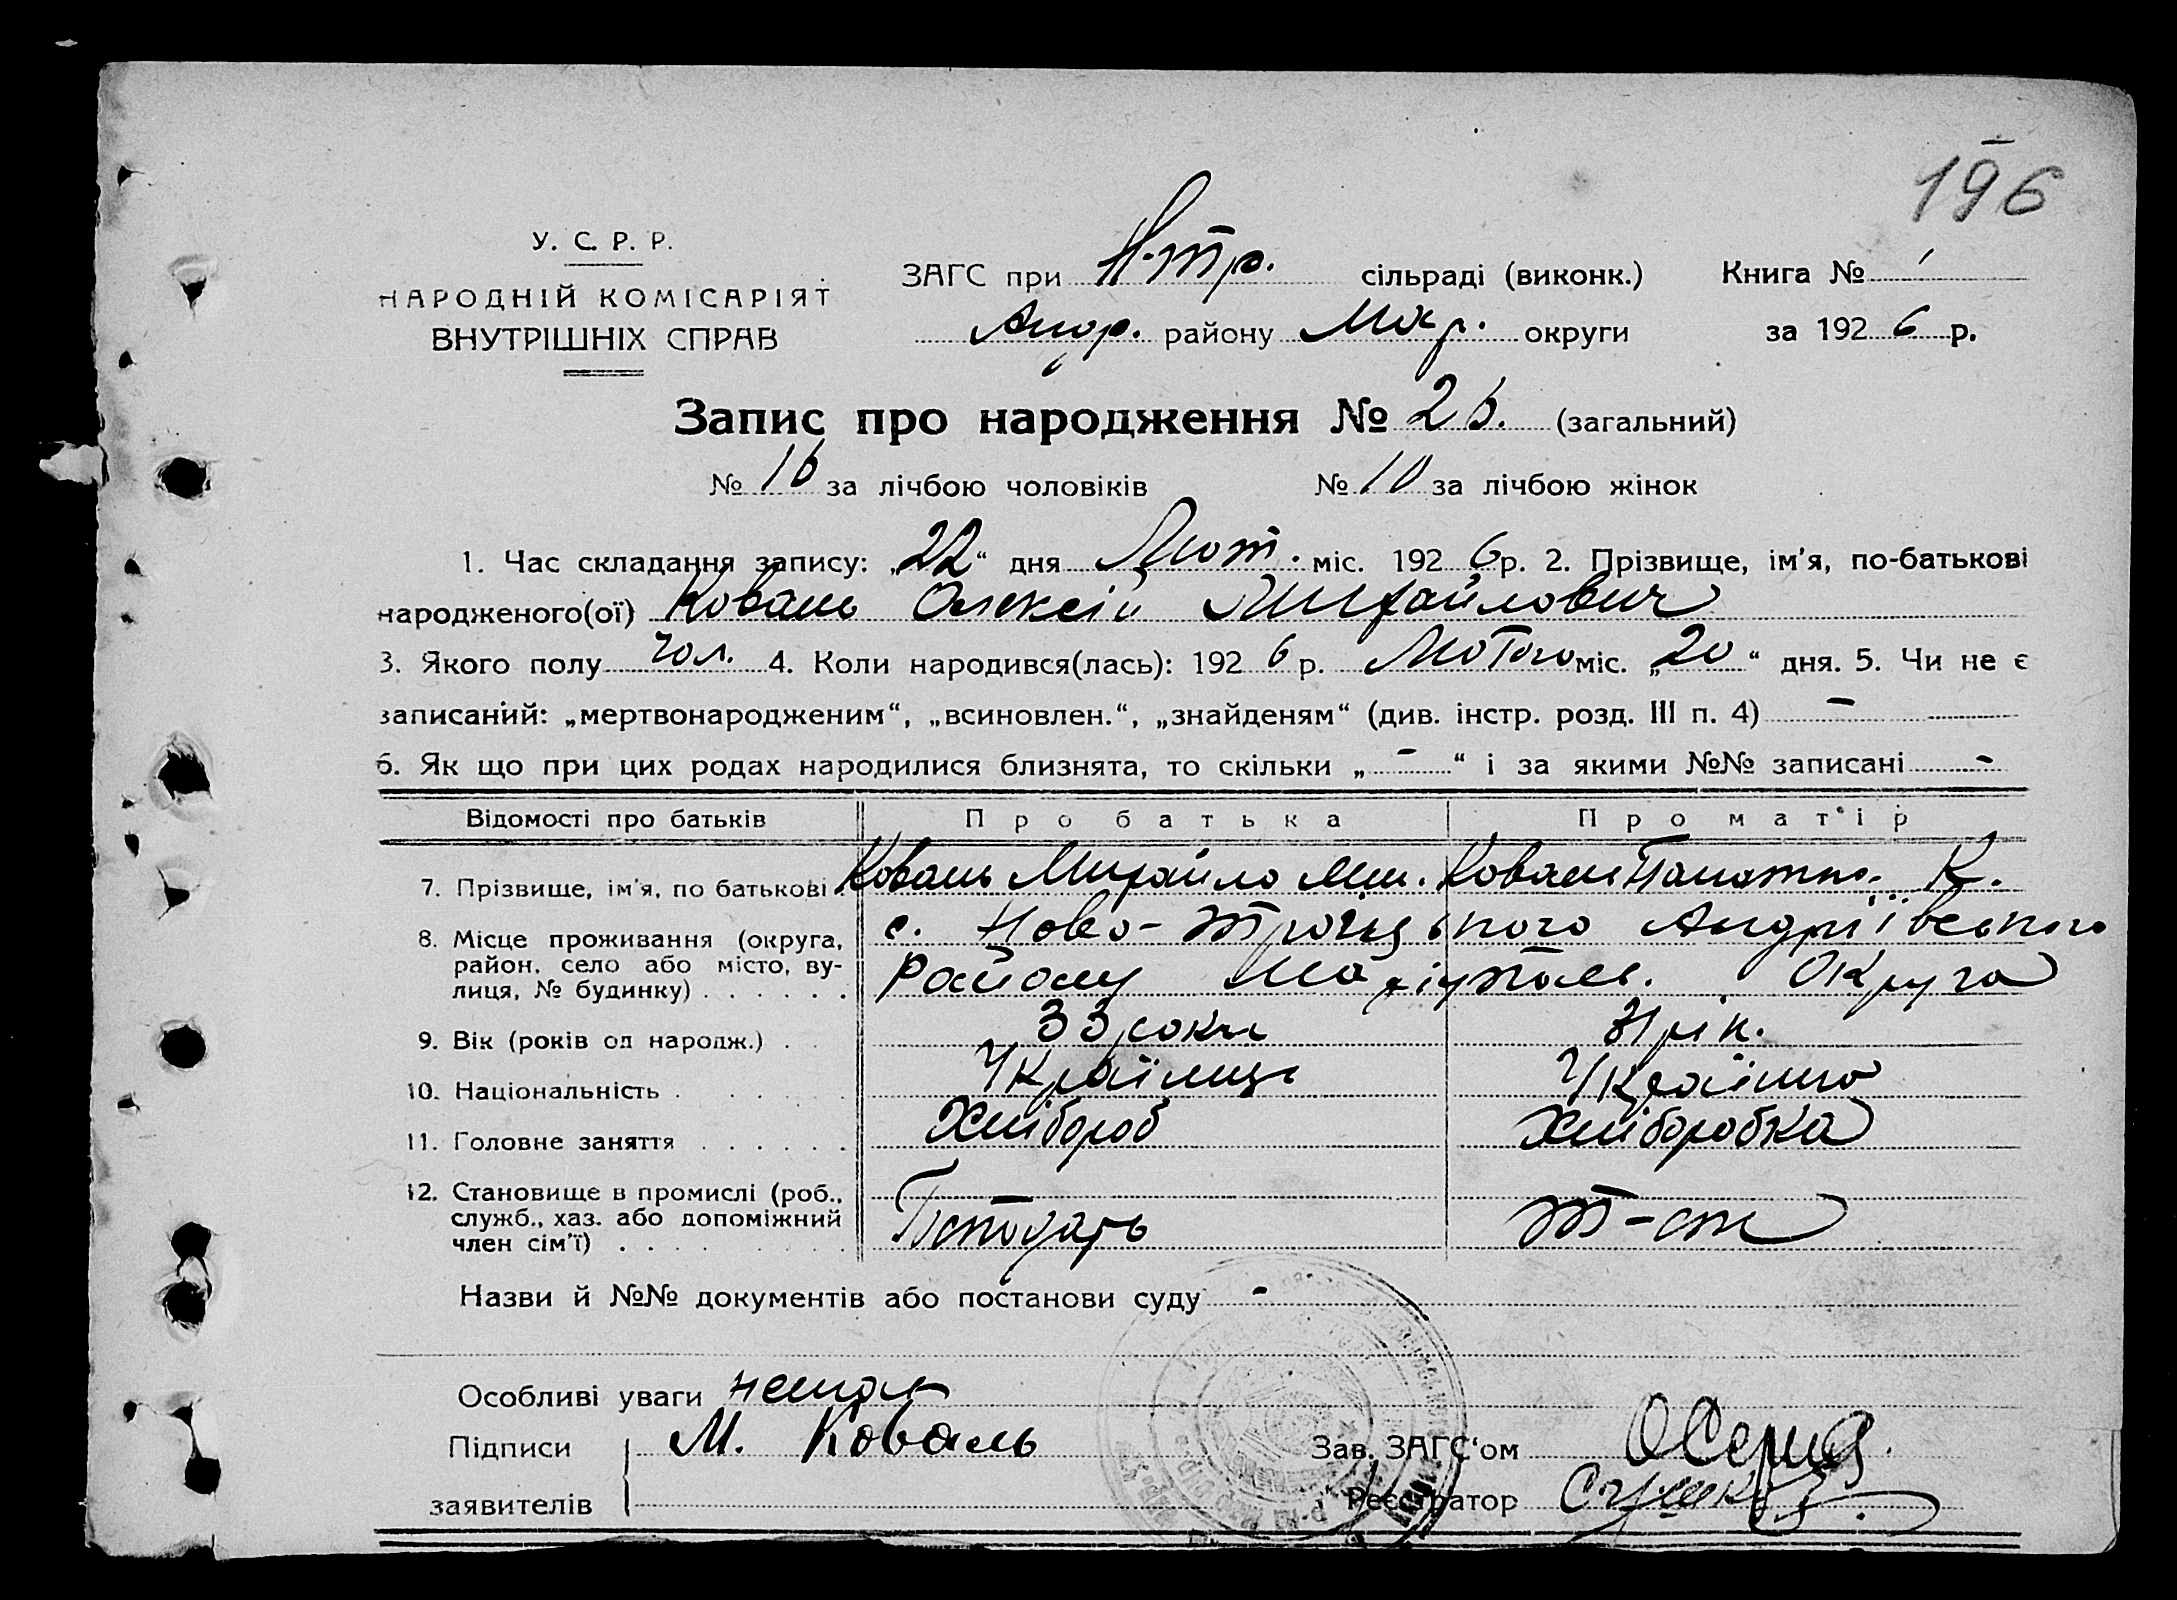 196
У. С. Р. Р.
НАРОДНІЙ КОМІСАРІЯТ
ВНУТРІШНІХ СПРАВ
ЗАГС при Н-Тр. сільраді (виконк.) Книга № 1
Андр. району Мар. округи за 1926 р.
Запис про народження № 26. (загальний)
№ 16 за лічбою чоловіків № 10 за лічбою жінок
1. Час складання запису: „22“ дня Лют. міс. 1926 р. 2. Прізвище, ім'я, по-батькові
народженого(ої) Коваль Олексій Михайлович
3. Якого полу чол. 4. Коли народився(лась): 1926 р. Лютого міс. „20“ дня. 5. Чи не є
записаний: „мертвонародженим“, „всиновлен.“, „знайденям“ (див. інстр. розд. III п. 4) -
6. Як що при цих родах народилися близнята, то скільки „-“ і за якими №№ записані -
Відомості про батьків Про батька Про мат'ір
7. Прізвище, ім'я, по батькові Коваль Михайло Мик. Коваль К.
8. Місце проживання (округа, район, село або місто, вулиця, № будинку) с. Ново-Троїцького Андріївського
Району Маріупол. Округа
9. Вік (років од народж.) 33 роки 31 рік.
10. Національність Українець Українка
11. Головне заняття Хлібороб Хліборобка
12. Становище в промислі (роб.,
служб., хаз. або допоміжний
член сім'ї) Господарь
Назви й №№ документів або постанови суду -
Особливі уваги немає
Підписи М. Коваль Зав. ЗАГС'ом
заявителів Реєстратор